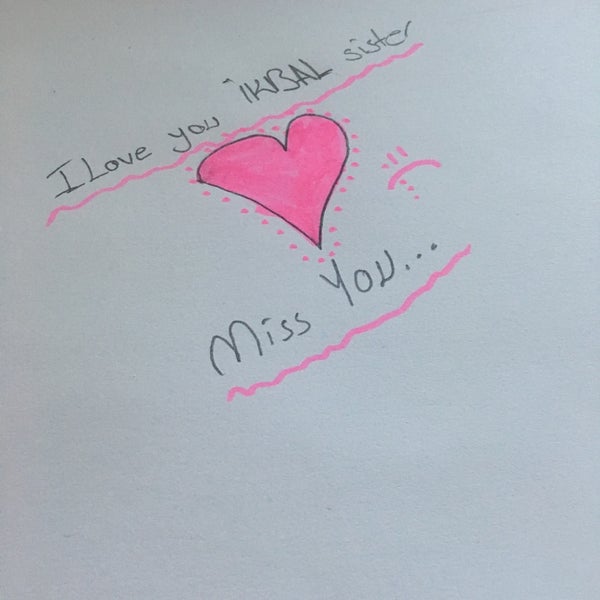 I Love you iKBAL sister
Miss You...